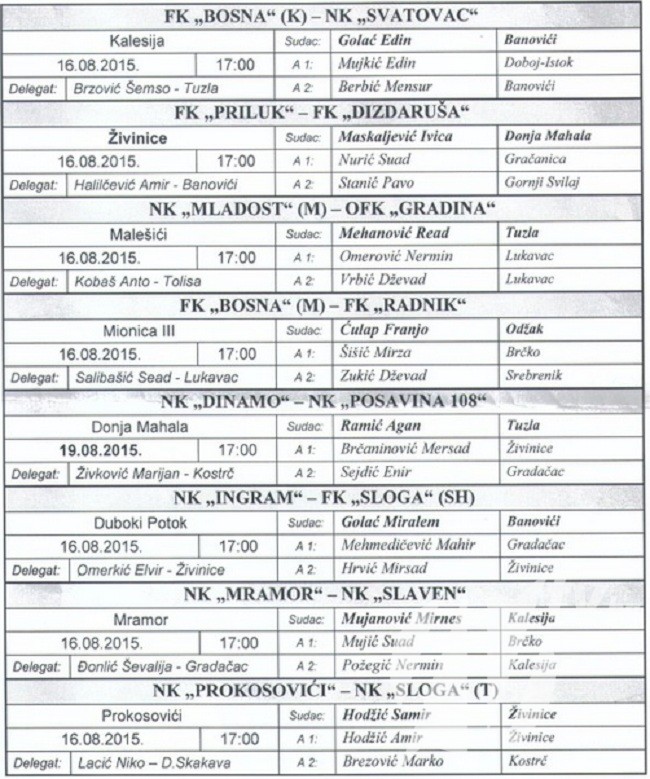 FK „BOSNA“ (K) – NK „SVATOVAC“
Kalesija Sudac: Golać Edin Banovići
16.08.2015. 17:00 A 1: Mujkić Edin Doboj-Istok
Delegat: Brzović Šemso - Tuzla A 2: Berbić Mensur Banovići
FK „PRILUK“ – FK „DIZDARUŠA“
Živinice Sudac: Maskaljević Ivica Donja Mahala
16.08.2015. 17:00 A 1: Nurić Suad Gračanica
Delegat: Halilčević Amir - Banovići A 2: Stanić Pavo Gornji Svilaj
NK „MLADOST“ (M) – OFK „GRADINA“
Malešići Sudac: Mehanović Read Tuzla
16.08.2015. 17:00 A 1: Omerović Nermin Lukavac
Delegat: Kobaš Anto - Tolisa A 2: Vrbić Dževad Lukavac
FK „BOSNA“ (M) – FK „RADNIK“
Mionica III Sudac: Ćulap Franjo Odžak
16.08.2015. 17:00 A 1: Šišić Mirza Brčko
Delegat: Salibašić Sead - Lukavac A 2: Zukić Dževad Srebrenik
NK „DINAMO“ – NK „POSAVINA 108“
Donja Mahala Sudac: Ramić Agan Tuzla
19.08.2015. 17:00 A 1: Brčaninović Mersad Živinice
Delegat: Živković Marijan - Kostrč A 2: Sejdić Enir Gradačac
NK „INGRAM“ – FK „SLOGA“ (SH)
Duboki Potok Sudac: Golać Miralem Banovići
16.08.2015. 17:00 A 1: Mehmedičević Mahir Gradačac
Delegat: Omerkić Elvir - Živinice A 2: Hrvić Mirsad Živinice
NK „MRAMOR“ – NK „SLAVEN“
Mramor Sudac: Mujanović Mirnes Kalesija
16.08.2015. 17:00 A 1: Mujić Suad Brčko
Delegat: Đonlić Ševalija - Gradačac A 2: Požegić Nermin Kalesija
NK „PROKOSOVIĆI“ – NK „SLOGA“ (T)
Prokosovići Sudac: Hodžić Samir Živinice
16.08.2015. 17:00 A 1: Hodžić Amir Živinice
Delegat: Lacić Niko – D.Skakava A 2: Brezović Marko Kostrč